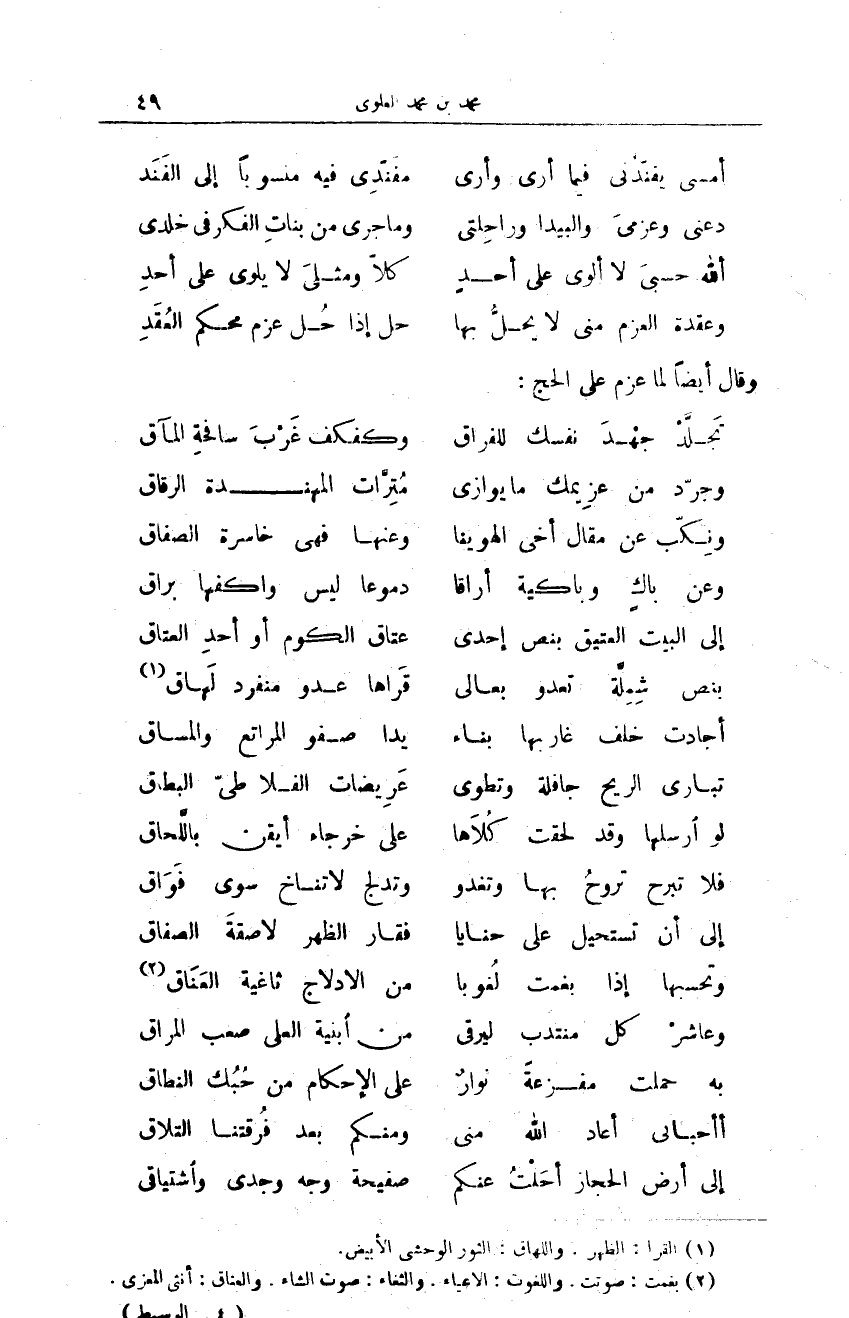 محمد بن محمد العلوى ٤٩
أمسى يفندُنى فيما أرى وأرى مفنّدِى فيه منسوباً إلى الفَنَد
دعنى وعزمىَ والبيدا وراحِلتى وماجرى من بناتِ الفكر فى خلدى
ألله حسبىَ لا ألوى على أحدٍ كلاّ ومثلىَ لا يلوى على أحدِ
وعقدة العزم منى لا يحلُّ بها حل إذا حُل عزم محكم العُقَدِ
وقال أيضاً لما عزم على الحج :
تَجلَّدْ جهْدَ نفسك للفراق وكفكف غَرْبَ سافحةِ المآق
وجرّد من عزيمك مايوازى مُتِرَّات المهندة الرقاق
ونكّب عن مقال أخى الهوينا وعنها فهى خاسرة الصفاق
وعن باكٍ وباكية أراقا دموعا ليس واكفها براق
إلى البيت العتيق بنص إحدى عتاق الكوم أو أحدِ العتاق
بنص شِمِلَّة تعدو بعالى قَراها عدو منفرد لَهاق(١)
أجادت خلف غاربها بناء يدا صفو المراتع والمساق
تبارى الريح جافلة وتطوى عَرِيضات الفلا طىّ البطاق
لو أرسلها وقد لحقت كُلاَها على خرجاء أيقن باللَّحاق
فلا تبرح تروحُ بها وتغدو وتدلج لاتناخ سوى فَوَاق
إلى أن تستحيل على حنايا فقار الظهر لاصقةَ الصفاق
وتحسبها إذا بغمت لُغوبا من الادلاج ثاغية العَنَاق(٢)
وعاشرْ كل منتدب ليرقى من أبنية العلى صعب المراق
به حملت مفزعةً نوارٌ على الإحكام من حُبُك النطاق
أأحبابى أعاد الله منى ومنكم بعد فُرقتنا التلاق
إلى أرض الحجاز أحَلْتُ عنكم صفيحة وجه وجدى وأشتياقى
(١) القرا : الظهر . واللهاق : الثور الوحشى الأبيض.
(٢) بغمت : صوتت . واللغوب : الاعياء . والثغاء : صوت الشاء . والعناق : أنثى المعزى .
( ٤ ـ الوسيط )